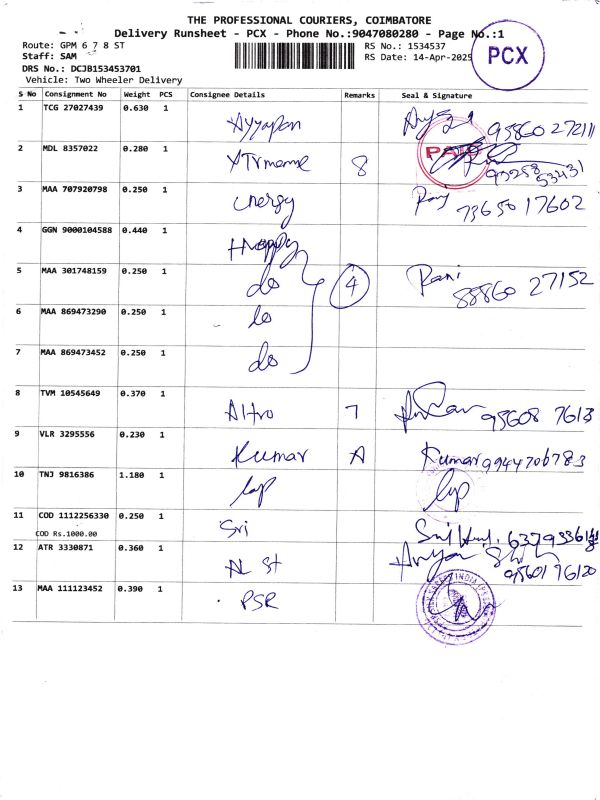 THE PROFESSIONAL COURIERS, COIMBATORE
Delivery Runsheet - PCX - Phone No.:9047080280 - Page No.:1
Route: GPM 6 7 8 ST
RS No.: 1534537
Staff: SAM
RS Date: 14-Apr-2025
PCX
DRS No.: DCJB153453701
Vehicle: Two Wheeler Delivery
S No Consignment No Weight PCS Consignee Details Remarks Seal & Signature
1 TCG 27027439 0.630 1 Ayyapan 95860 272111
2 MDL 8357022 0.280 1 8 PAID 53431
3 MAA 707920798 0.250 1 energy Raj 73650 17602
4 GGN 9000104588 0.440 1 Happy
5 MAA 301748159 0.250 1 do 4 Rani 88860 27152
6 MAA 869473290 0.250 1 do
7 MAA 869473452 0.250 1 do
8 TVM 10545649 0.370 1 Altro 7 95608 7613
9 VLR 3295556 0.230 1 Kumar A Kumar 9944706783
10 TNJ 9816386 1.180 1
11 COD 1112256330 0.250 1 Sri
COD Rs.1000.00
12 ATR 3330871 0.360 1 95601 76120
13 MAA 111123452 0.390 1 PSR